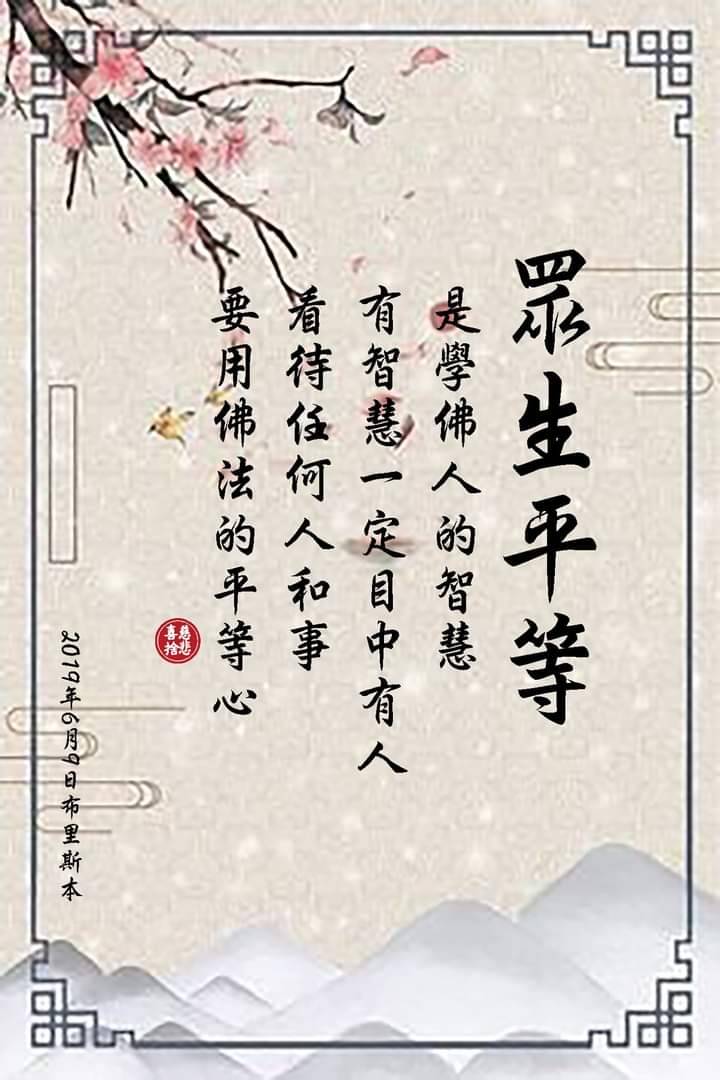 眾生平等
是學佛人的智慧
有智慧一定目中有人
看待任何人和事
要用佛法的平等心
慈悲
喜捨
2019年6月9日布里斯本